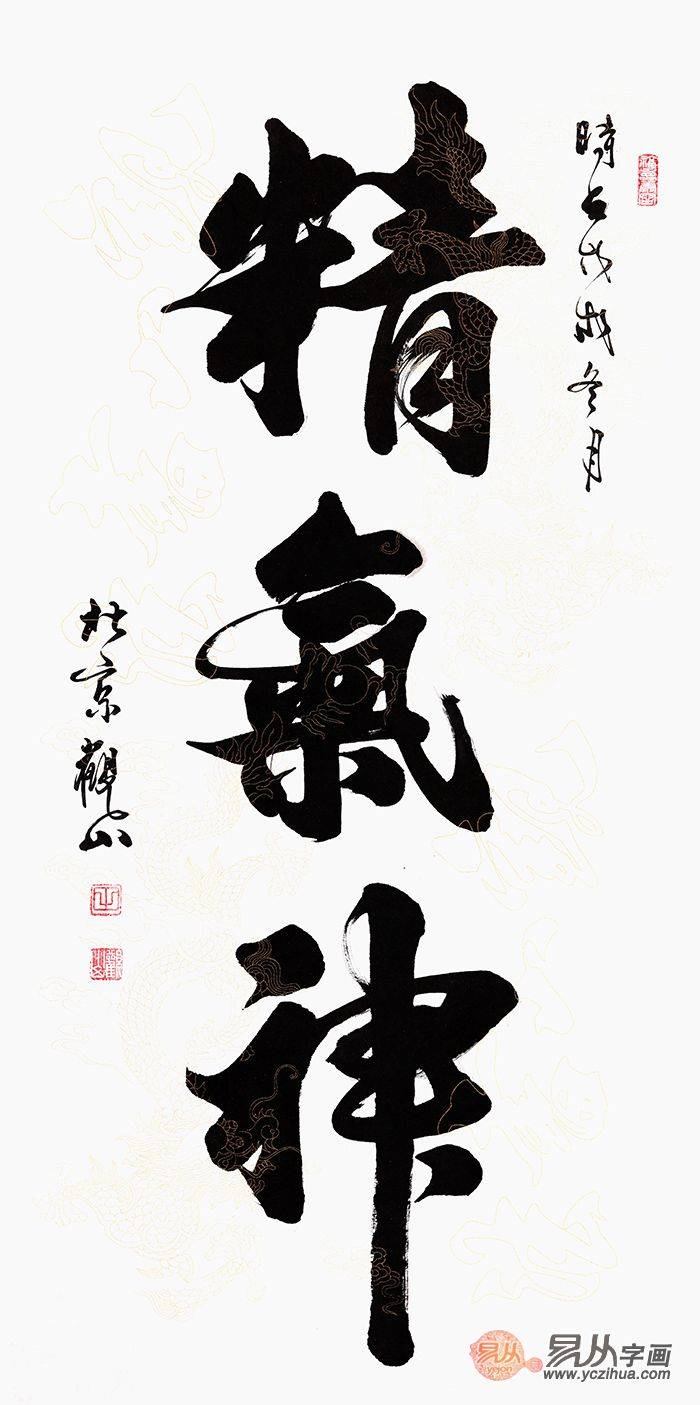 時在戊戌冬月
精氣神
於京觀山
易从字画
www.yczihua.com